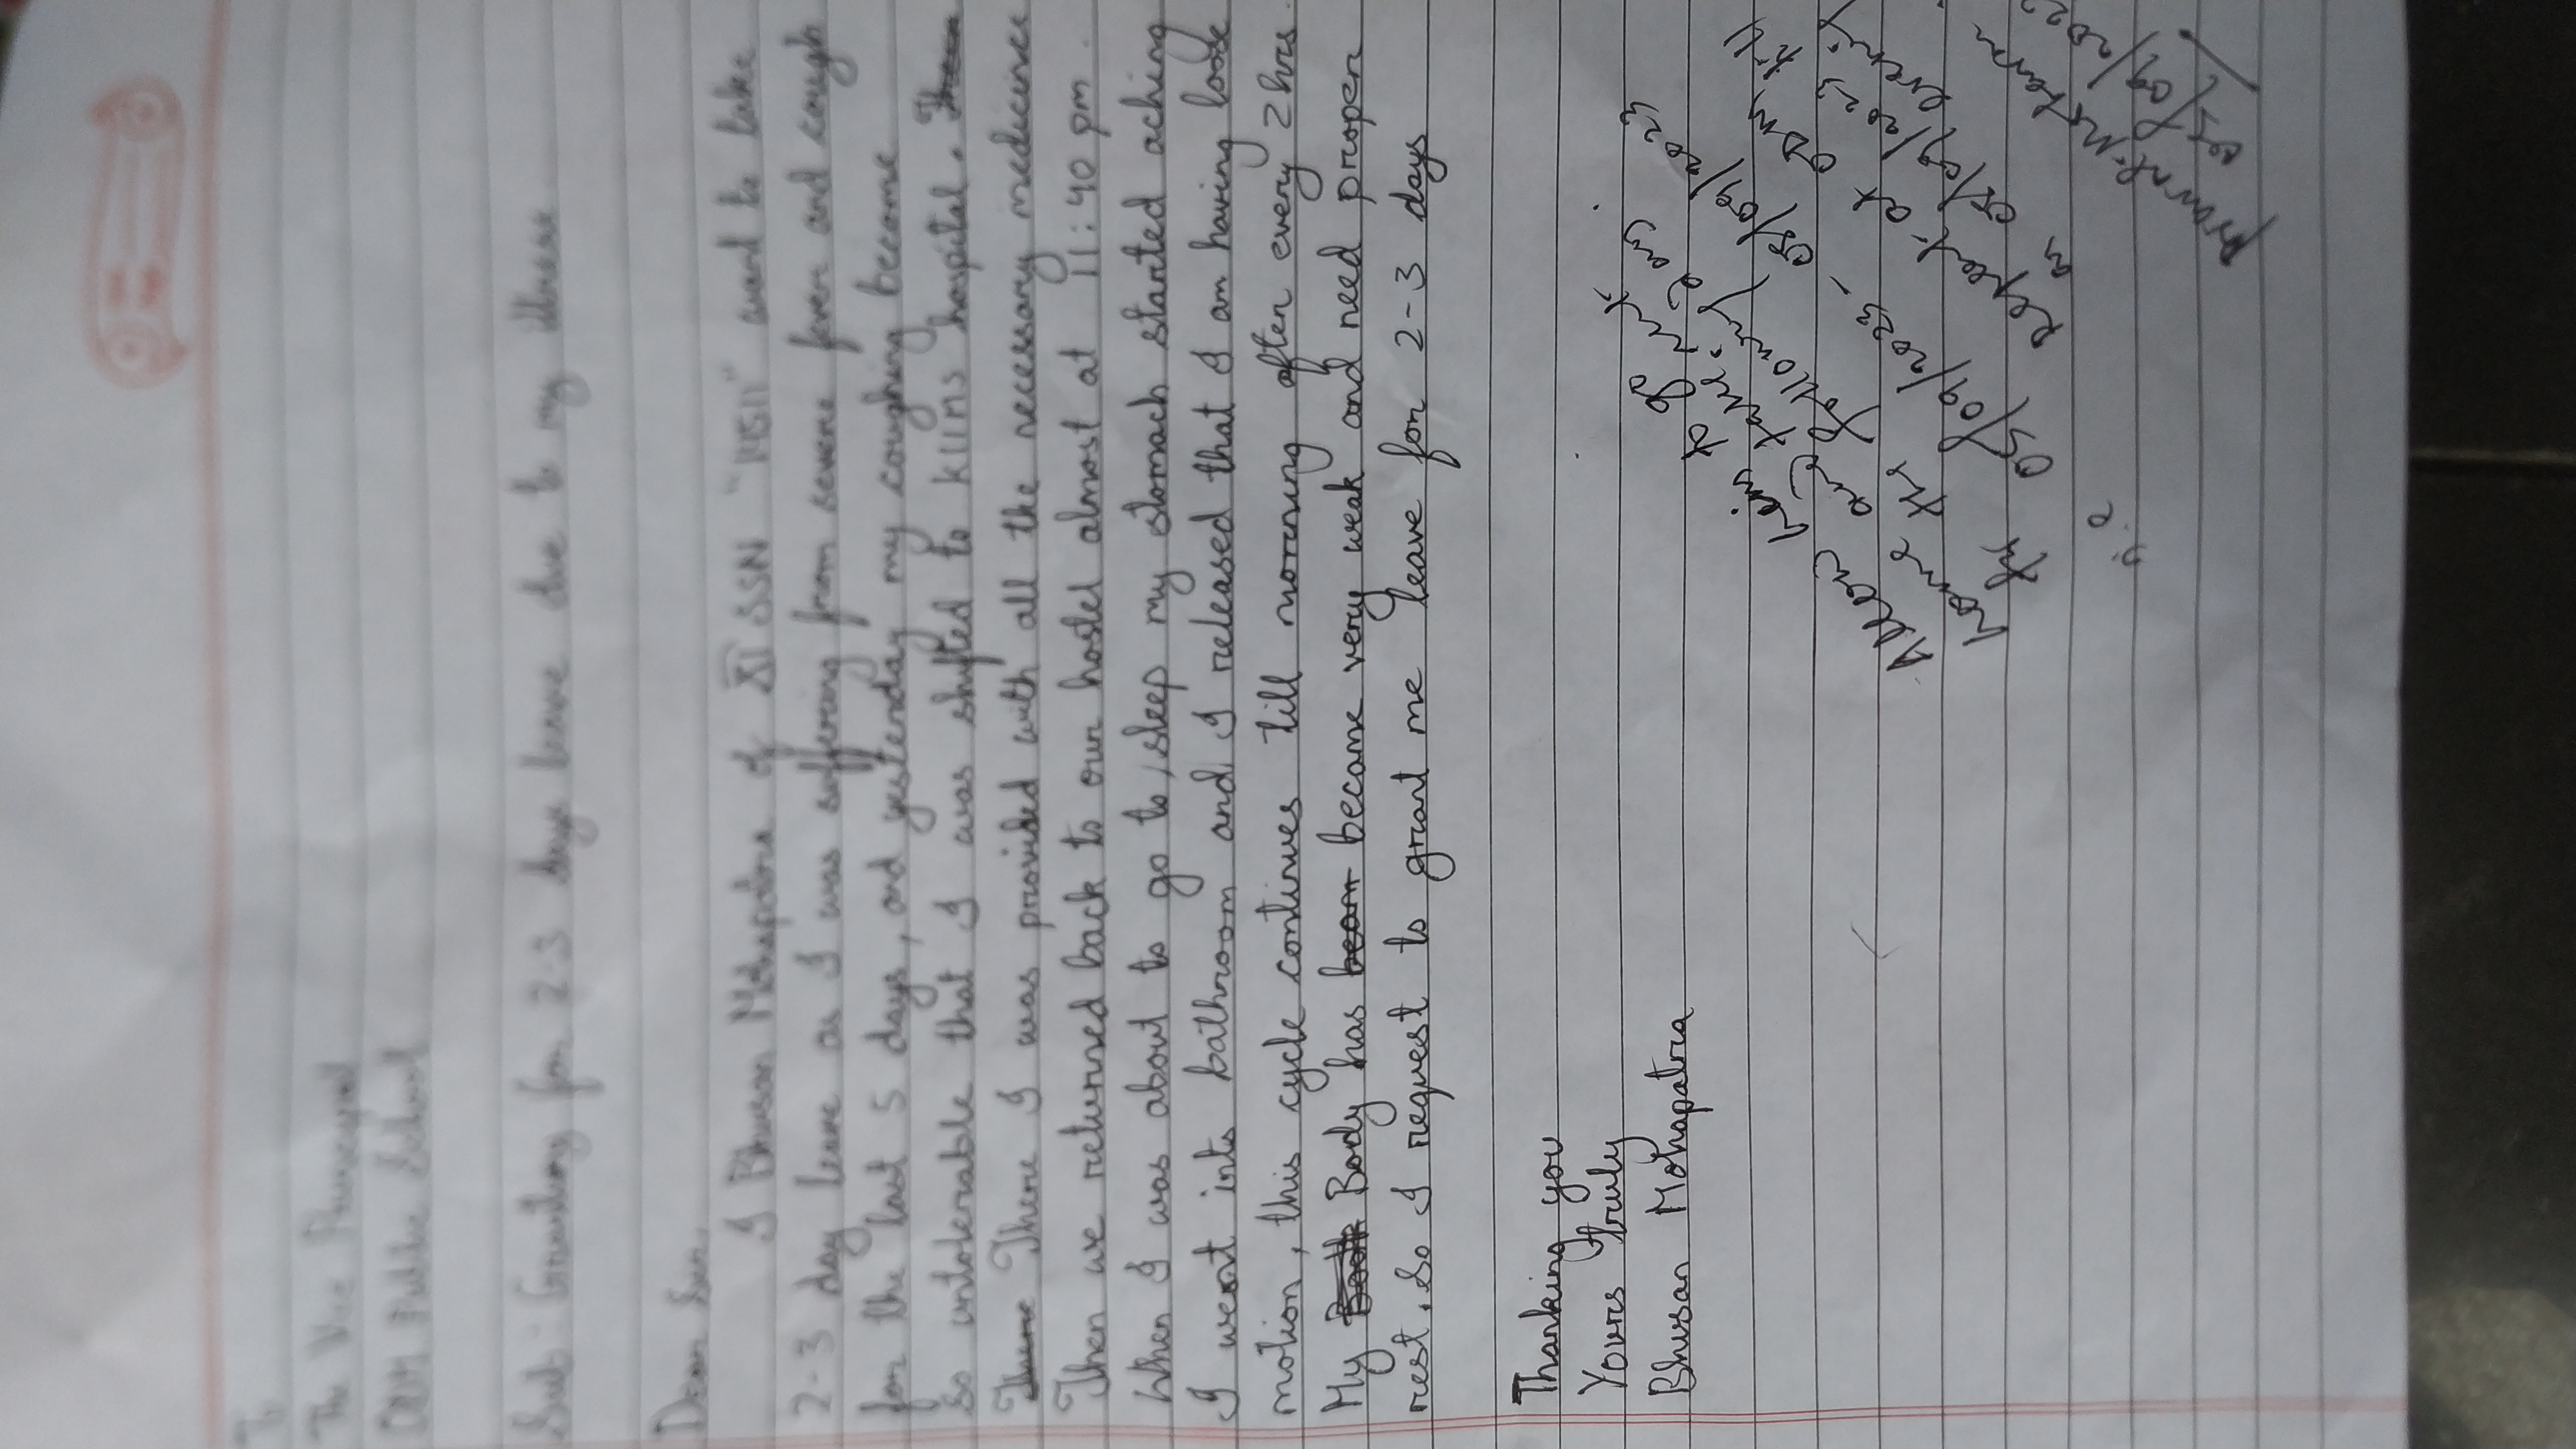 To
The Vice Principal
ODM Public School
Sub:- Granting for 2-3 days leave due to my illness
Dear Sir,
I Bhusan Mohapatra of XI SSN "" want to take
2-3 day leave as I was suffering from severe fever and cough
for the last 5 days, and yesterday my coughing become
so untolerable that I was shifted to KIIMS hospital.
There I was provided with all the necessary medicines
Then we returned back to our hostel almost at 11:40 pm.
When I was about to go to sleep my stomach started aching
I went into bathroom and I released that I am having loose
motion, this cycle continues till morning after every 2 hrs.
My Body has became very weak and need proper
rest. So I request to grant me leave for 2-3 days
Thanking you
Yours truly
Bhusan Mohapatra
Allow to go
home and
for 05/09/2023,
05/09/2023
till
Report at
05/09/2023 evening
05/09/202